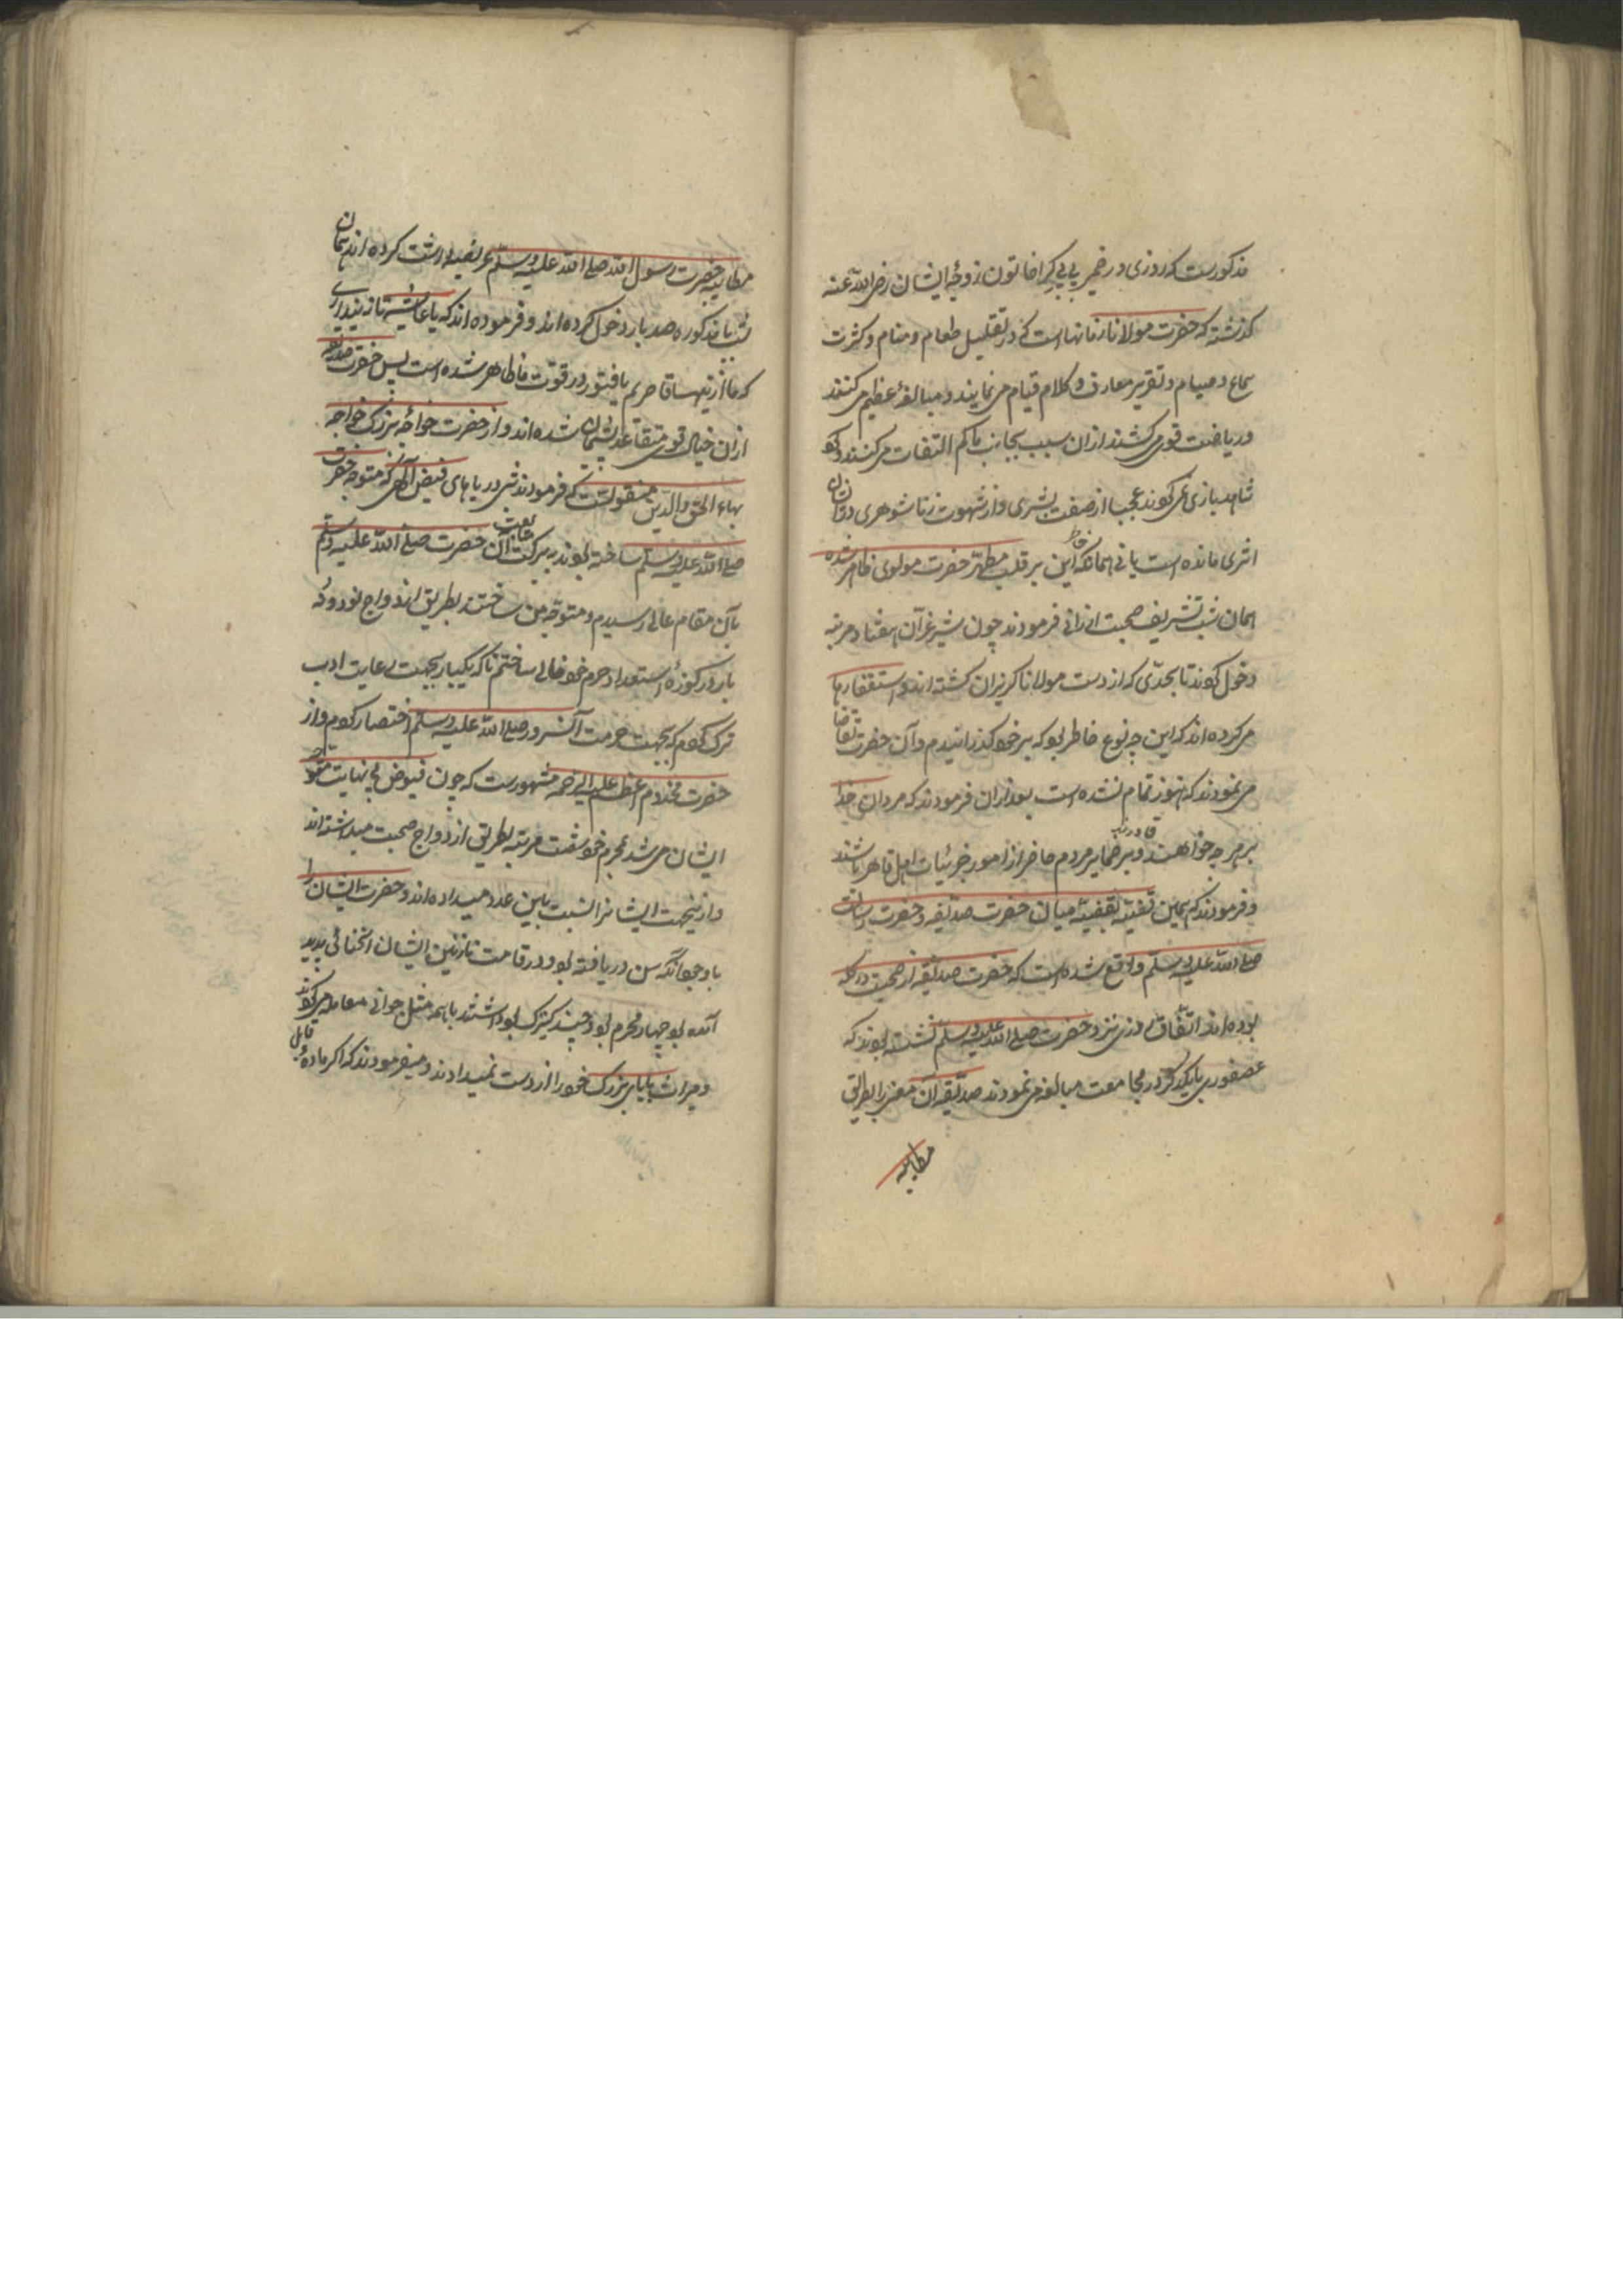 مذکورست که روزی در ضمیر بی بی کرا خاتون زوجهٔ ایشان رضی الله عنه
گذشته که حضرت مولانا زمانها است که در تقلیل طعام و منام و کثرت
سماع و صیام و تقریر معارف و کلام قیام می نمایند و مبالغهٔ عظیم می کنند
و ریاضت قوی می کشند ازان سبب بجانب ما کم التفات می کنند و کو
شاهد بازی نمی کوند عجبا از صفت بشری و از شهوت زناشوهری در ایشان
اثری مانده است یا نی همانکه این خاطر بر قلب مطهر حضرت مولوی ظاهر شده
همان شب تشریف صحبت ارزانی فرمودند چون شیر غرآن هفتاد مرتبه
دخول کوند تا بحدّی که از دست مولانا کریزان کشته اند و استغفارها
می کرده اند که این چه نوع خاطر بوکه بر خو کذرانیدم و آن حضرت تقاضا
می نمودند که هنوز تمام نشده است بعد ازان فرمودند که مردان خدا
بر هر چه خواهند قادرند و بر ضمایر مردم حاضر از امور جزئیات اهل قاهر باشند
و فرمودند که همین قضیه بقضیه میان حضرت صدیقه و حضرت رسالت
صلی الله علیه وسلم واقع شده است که حضرت صدیقه از صحبت در کله
بوده اند اتفاق روزی نزد حضرت صلی الله علیه وسلم نشسته بوند که
عصفوری با یکدکر در مجامعت مبالغه می نمودند صدیقه آن معنی را بطریق
مطایبه
مطایبه حضرت رسول الله صلی الله علیه وسلم عرضه داشت کرده اند همان
شب با مذکوره صد بار دخول کرده اند و فرموده اند که یا عایشه تا نپنداری
که ما ازینها قاصریم یا فتور در قوّت ما ظاهر شده است پس حضرت صدیقه
ازان خیال قوی متقاعد و پشیمان شده اند و از حضرت خواجهٔ بزرک خواجه
بهاء الحق والدین منقولست که فرمودند شبی دریاهای فیض الهی که متوجه حضرت
صلی الله علیه وسلم ساخته بوند به برکت متابعت آن حضرت صلی الله علیه وسلم
بآن مقام عالی رسیدم و متوجه من ساختند بطریق ازدواج نود و نه
بار در کوزهٔ استعداد حرم خو خالی ساختم تا که یکبار بجهت رعایت ادب
ترک کوم که بجهت حرمت آنسرور صلی الله علیه وسلم اختصار کوم و از
حضرت مخدوم اعظم علیه الرحمه مشهورست که چون فیوض بی نهایت متوجه
ایشان می شد بمحرم خو شفت مرتبه بطریق ازدواج صحبت میداشته اند
و ازینجهت ایشانرا نسبت باین عدد میداده اند و حضرت ایشان را
با وجو آنکه سن دریافته بو و در قامت نازنین ایشان انحنائی پدید
آمده بو چهار محرم بو و چند کنیزک بو داشتند با همه مثل جوانی معامله می کوند
و میراث بابای بزرک خو را از دست نمیدادند و میفرمودند که اکر مادهٔ قابل